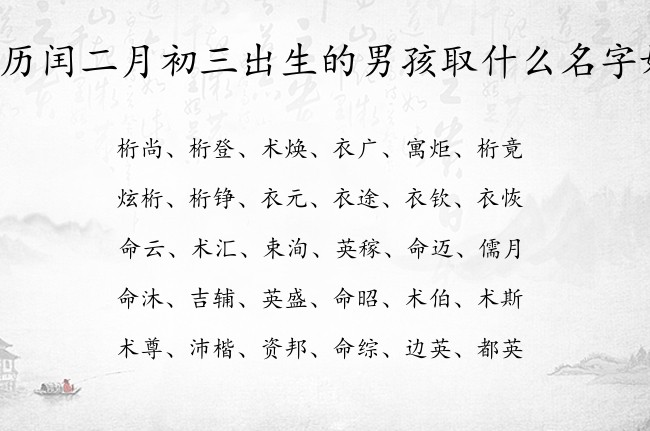 历闰二月初三出生的男孩取什么名字
桁尚、桁登、术焕、衣广、寓炬、桁竟
炫桁、桁铮、衣元、衣途、衣钦、衣恢
命云、术汇、束洵、英稼、命迈、儒月
命沐、吉辅、英盛、命昭、术伯、术斯
术尊、沛楷、资邦、命综、边英、都英